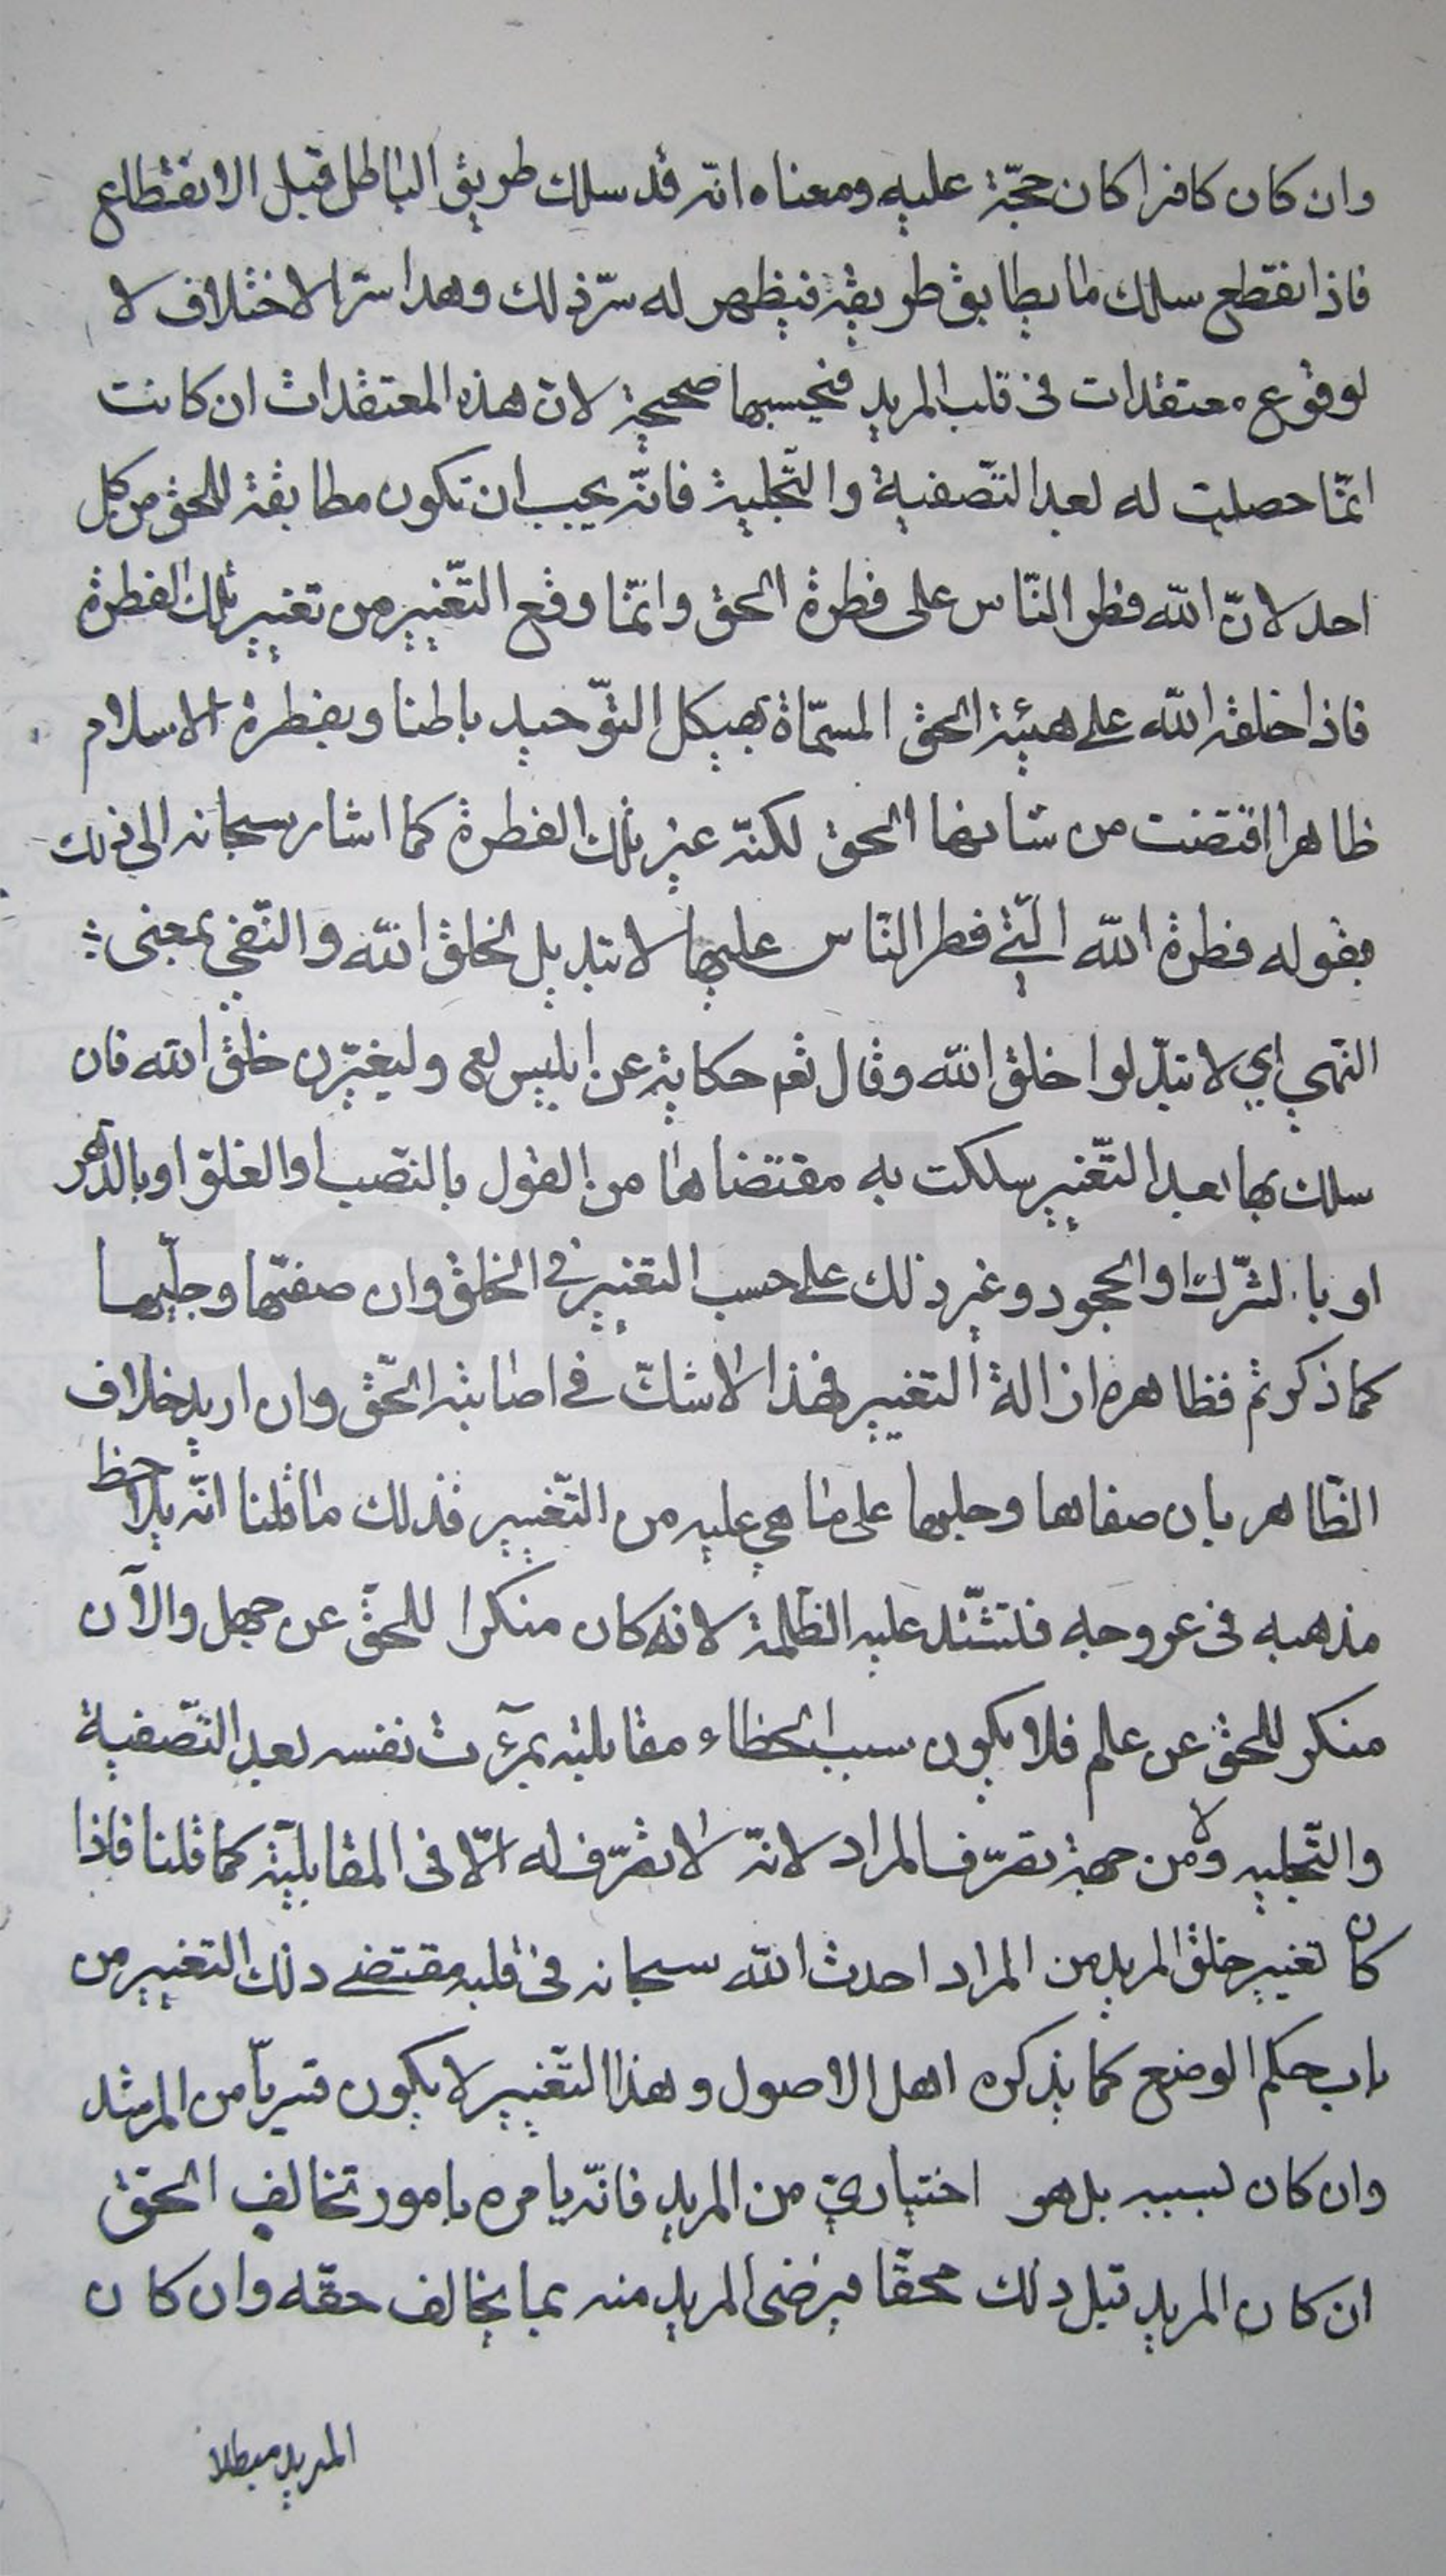 وان كان كافرا كان حجّة عليه ومعناه انّه قد سلك طريق الباطل قبل الانقطاع
فاذا انقطع سلك ما يطابق طريقته فيظهر له سرّ ذلك وهذا سرّ الاختلاف لا
لوقوع معتقدات فى قلب المريد فيحسبها صحيحة لانّ هذه المعتقدات ان كانت
انّما حصلت له بعد التّصفية والتّجلية فانّه يجب ان تكون مطابقة للحق من كل
احد لانّ الله فطر النّاس على فطرة الحق وانّما وقع التّغيير من تغيير تلك الفطرة
فاذا خلقه الله على هيئة الحق المسمّاة بهيكل التّوحيد باطنا وبفطرة الاسلام
ظاهرا اقتضت من شانها الحق لكنّه غير تلك الفطرة كما اشار سبحانه الى ذلك
بقوله فطرة الله الّتي فطر النّاس عليها لا تبديل لخلق الله والنّفي بمعنى
النّهي اي لا تبدّلوا خلق الله وقال تعم حكاية عن ابليس لع وليغيّرن خلق الله فان
سلك بها بعد التّغيير سلكت به مقتضاها من القول بالنّصب او الغلو او بالدّهر
او بالشّرك او الجحود وغير ذلك على حسب التغيير في الخلق وان صفّتها وجلّيها
كما ذكرتم فظاهره ازالة التغيير فهذا لا شكّ في اصابته الحّق وان اريد خلاف
الظّاهر بان صفاها وجلبها على ما هي عليه من التّغيير فذلك ما قلنا انّه يلاحظ
مذهبه فى عروجه فتشتّد عليه الظّلمة لانه كان منكرا للحقّ عن جهل والآن
منكر للحق عن علم فلا يكون سبب الخطاء مقابلته بمرآت نفسه بعد التّصفية
والتّجليه ولا من جهة تصرّف المراد لانّه لا تصرّف له الّا فى المقابليّة كما قلنا فاذا
كان تغيير خلق المريد من المراد احدث الله سبحانه فى قلبه مقتضى ذلك التغيير من
باب حكم الوضع كما يذكره اهل الاصول وهذا التّغيير لا يكون قسريّا من المرشد
وان كان بسببه بل هو اختياريّ من المريد فانّه يامره بامور تخالف الحق
ان كان المريد قبل ذلك محقّا فيرضى المريد منه بما يخالف حقّه وان كان
المريد مبطلا